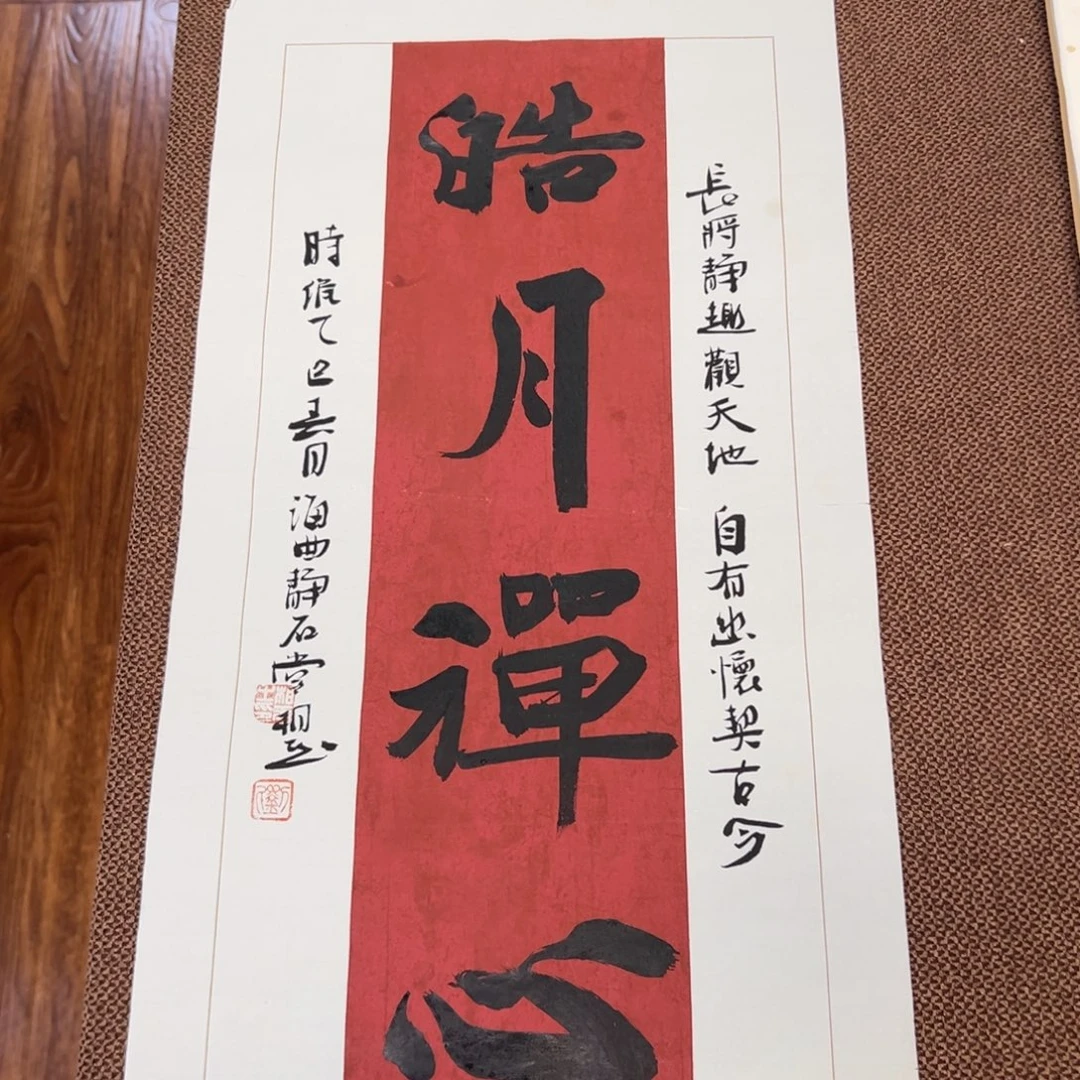 皓月禪心
長將靜趣觀天地 自有幽懷契古今
時維乙巳春月 海曲靜石堂